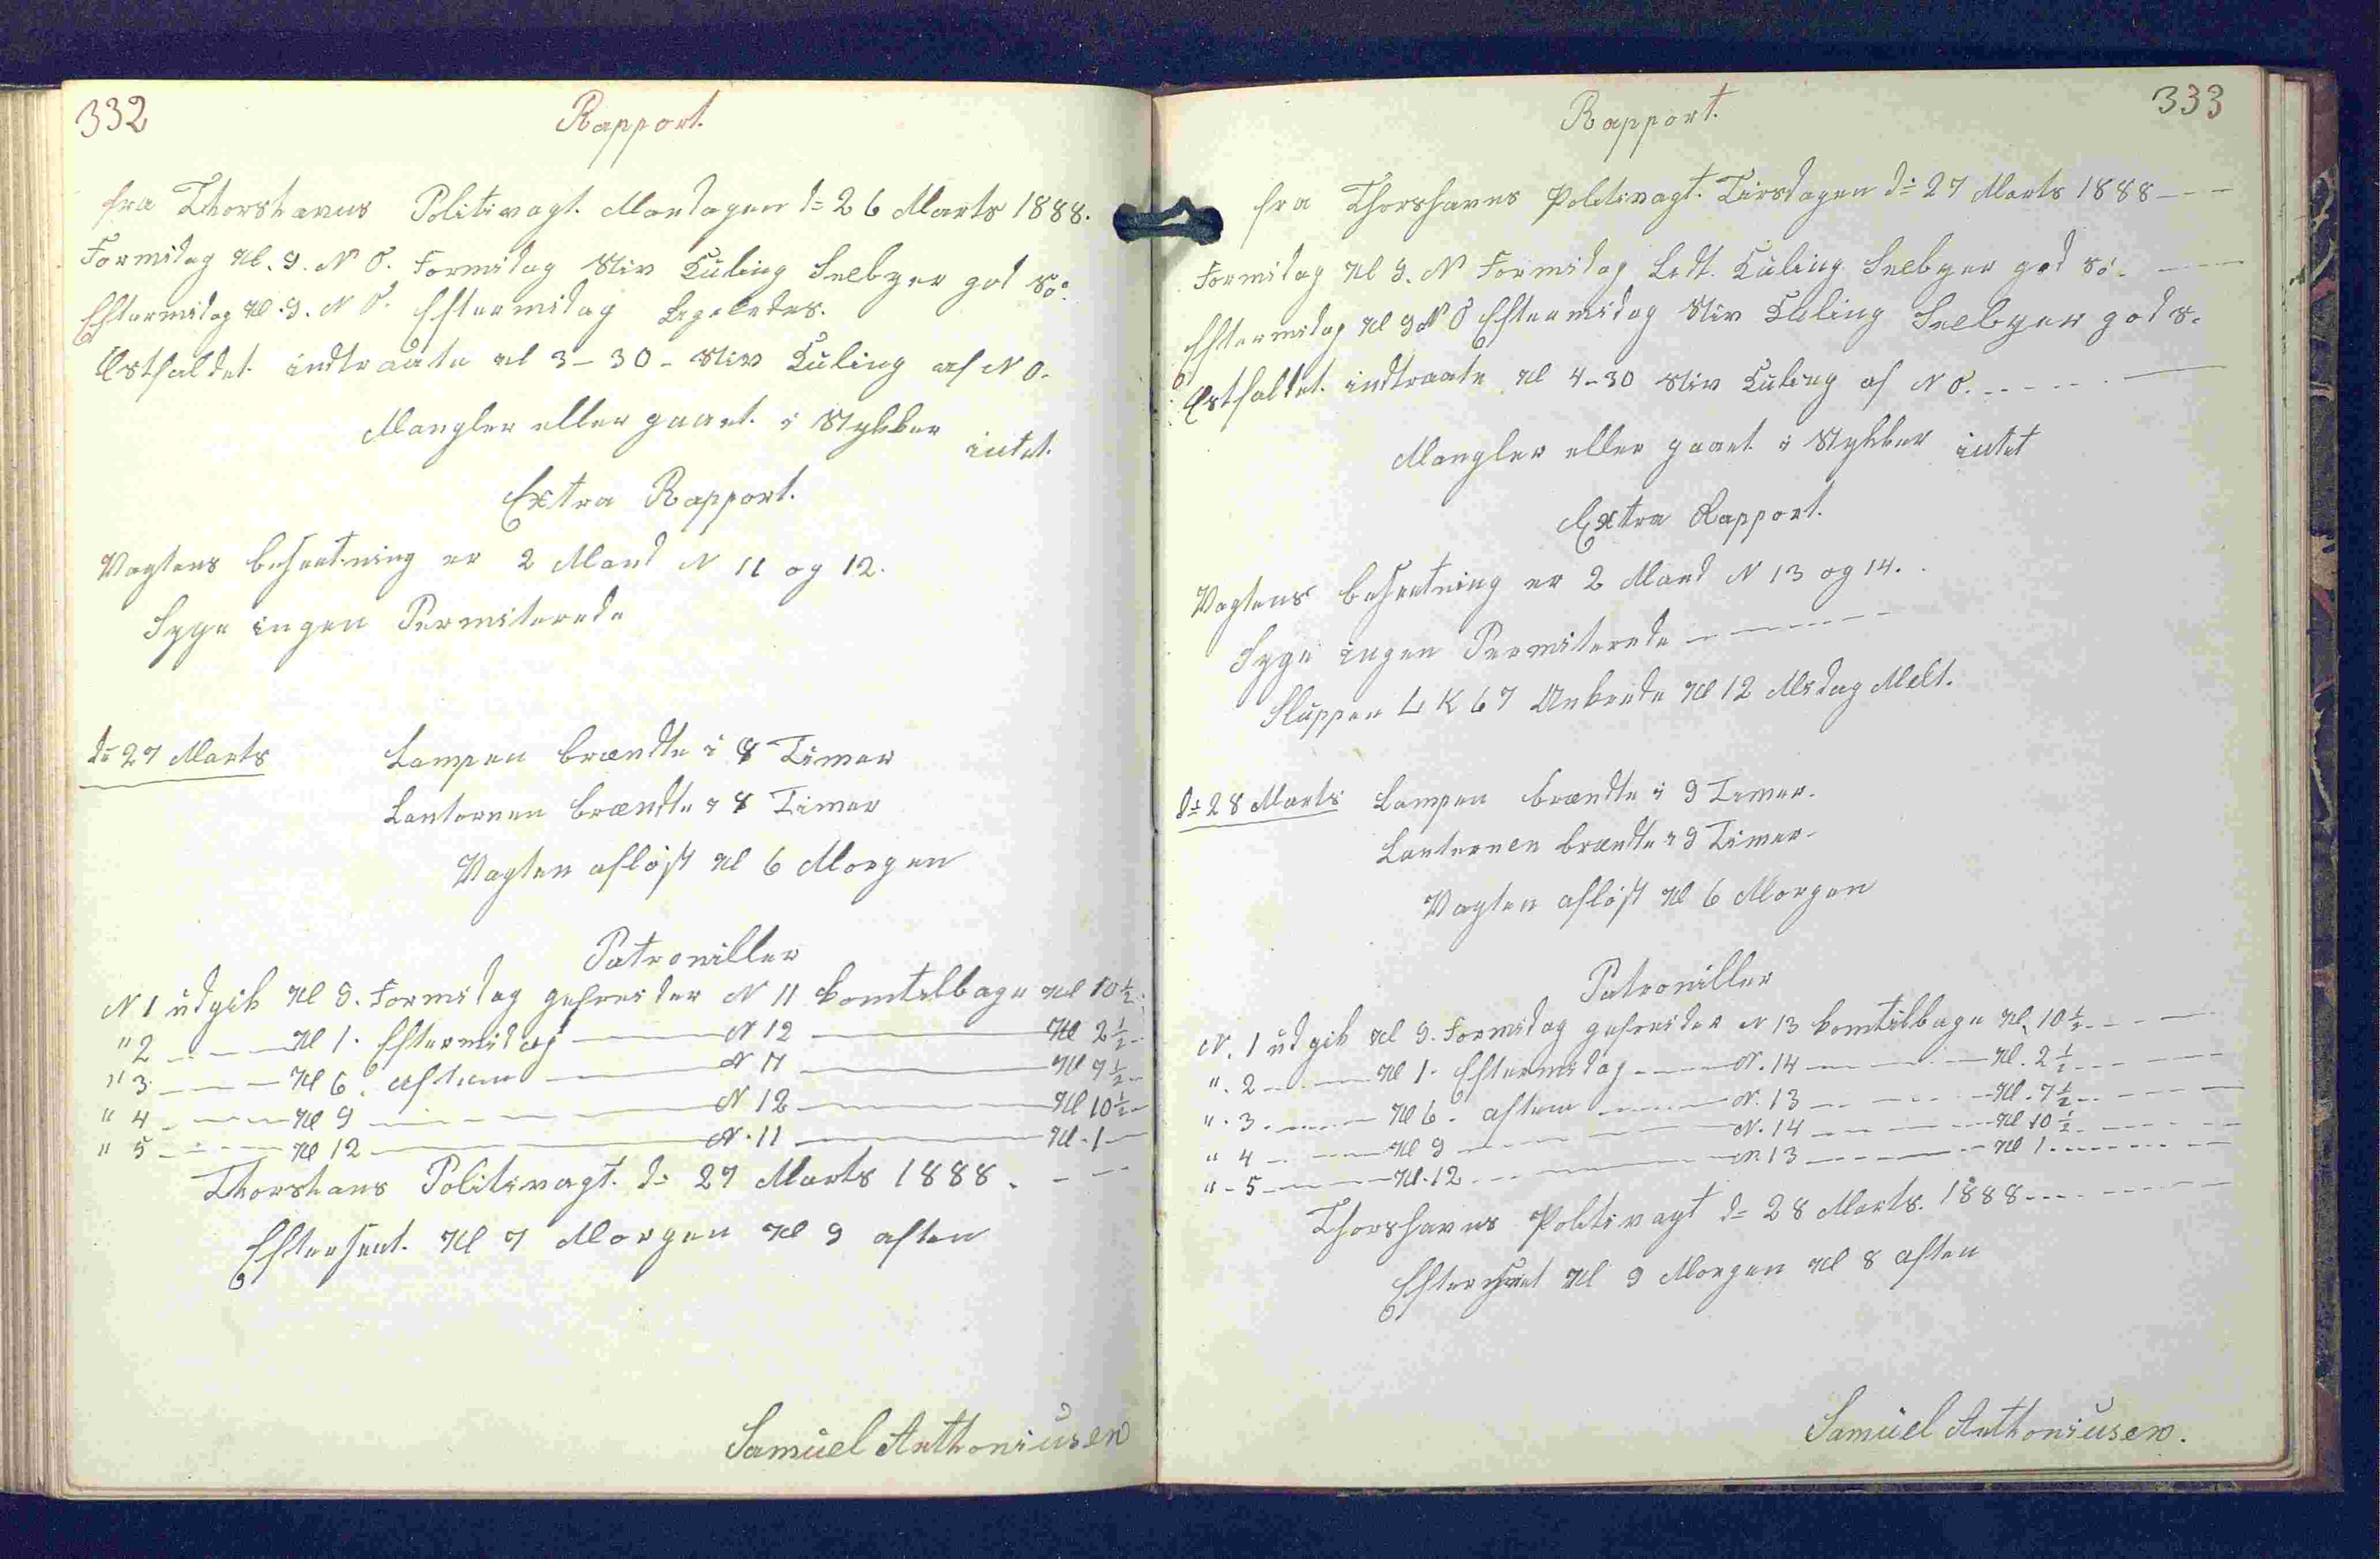 332
Rapport.
fra Thorshavns Politivagt. Mandagen d= 26 Marts 1888.
Formidag Kl. 9. N O. Formidag Stiv Kuling Snebyer god Sö.
Eftermidag Kl. 9. N O. Eftermidag Ligeledes.
Østfaldet indtraate Kl 3-30- Stiv Kuling af N O.
Mangler eller gaaet i Stykker intet.
Extra Rapport.
Vagtens besætning er 2 Mand N 11 og 12.
Syge ingen Permiterede
d= 27 Marts Lampen brændte i 8 Timer
Lanternen brændte i 8 Timer
Vagten afløst Kl 6 Morgen
Patrouiller
N 1 udgik Kl 9. Formidag gefreider N 11 komtilbage Kl 10½.
" 2 Kl 1. Eftermidag N 12 Kl 2½
" 3 Kl 6. aften N 11 Kl 7½
" 4 Kl 9 N 12 Kl 10½
" 5 Kl 12 N. 11 Kl. 1
Thorshans Politivagt. d= 27 Marts 1888.
Efterseet. Kl 7 Morgen Kl 9 aften
Samuel Anthoniusen
333
Rapport.
fra Thorshavns Politivagt. Tirsdagen d= 27 Marts 1888
Formidag Kl 9. N Formidag Ledt. Kuling Snebyer god Sö.
Eftermidag Kl 9 N O Eftermidag Stiv Kuling Snebyer god S.
Østfaldet indtraate Kl 4-30 Stiv Kuling af N O.
Mangler eller gaaet i Stykker intet
Extra Rapport.
Vagtens besætning er 2 Mand N 13 og 14.
Syge ingen Permiterede
Sluppen L K 67 Ankrede Kl 12 Midag Melt.
d= 28 Marts Lampen brændte i 9 Timer.
Lanternen brændte i 9 Timer.
Vagten afløst Kl 6 Morgen
Patrouiller
N. 1 udgik Kl 9. Formidag gefreider N 13 komtilbage Kl. 10½
" 2 Kl 1. Eftermidag N. 14 Kl. 2½
" 3 Kl 6. aften N. 13 Kl. 7½
" 4 Kl 9 N. 14 Kl 10½
" 5 Kl. 12 N 13 Kl 1.
Thorshavns Politivagt d= 28 Marts. 1888
Efterseet Kl 9 Morgen Kl 8 aften
Samuel Anthoniusen.